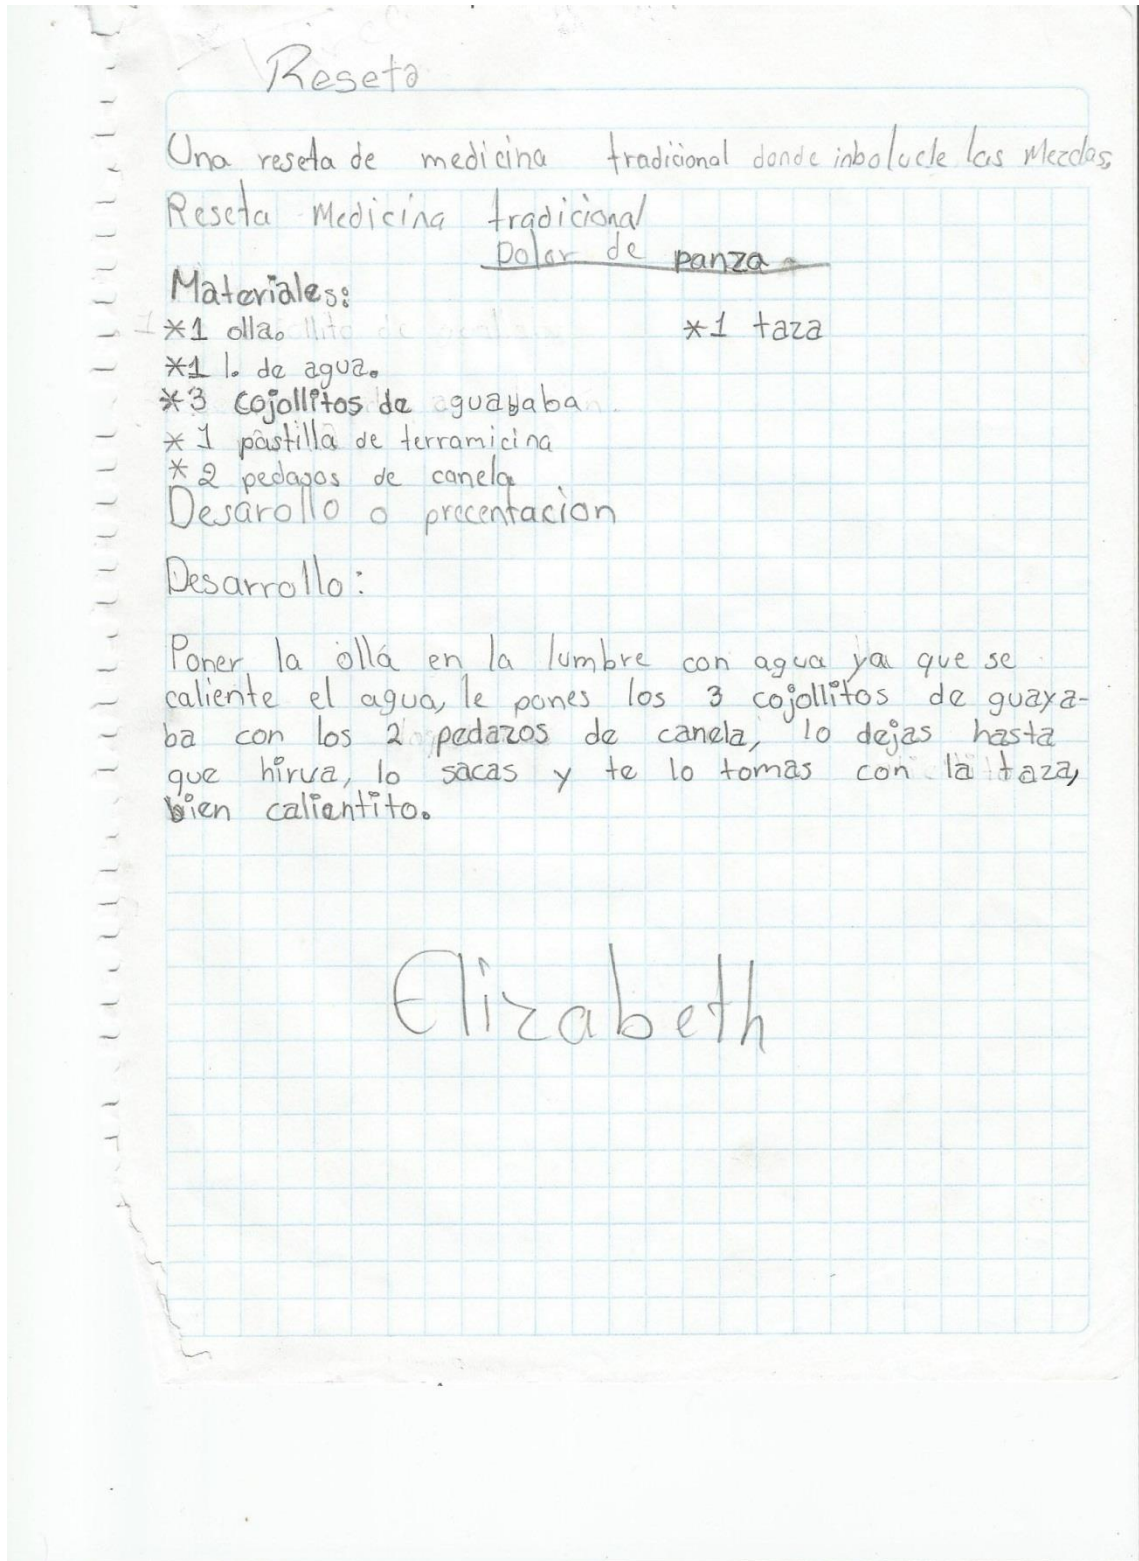 Reseta
Una reseta de medicina tradicional donde inbolucle las Mezclas,
Reseta Medicina tradicional
Dolor de panza
Materiales:
*1 olla. *1 taza
*1 l. de agua.
*3 cojollitos de guayaba
*1 pastilla de terramicina
*2 pedazos de canela
Desarollo o precentacion
Desarrollo:
Poner la olla en la lumbre con agua ya que se
caliente el agua, le pones los 3 cojollitos de guaya-
ba con los 2 pedazos de canela, lo dejas hasta
que hirva, lo sacas y te lo tomas con la taza,
bien calientito.
Elizabeth